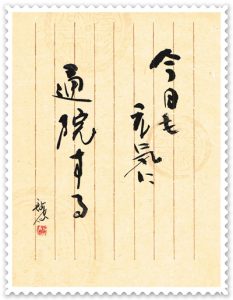 今日も
元気に
通院する